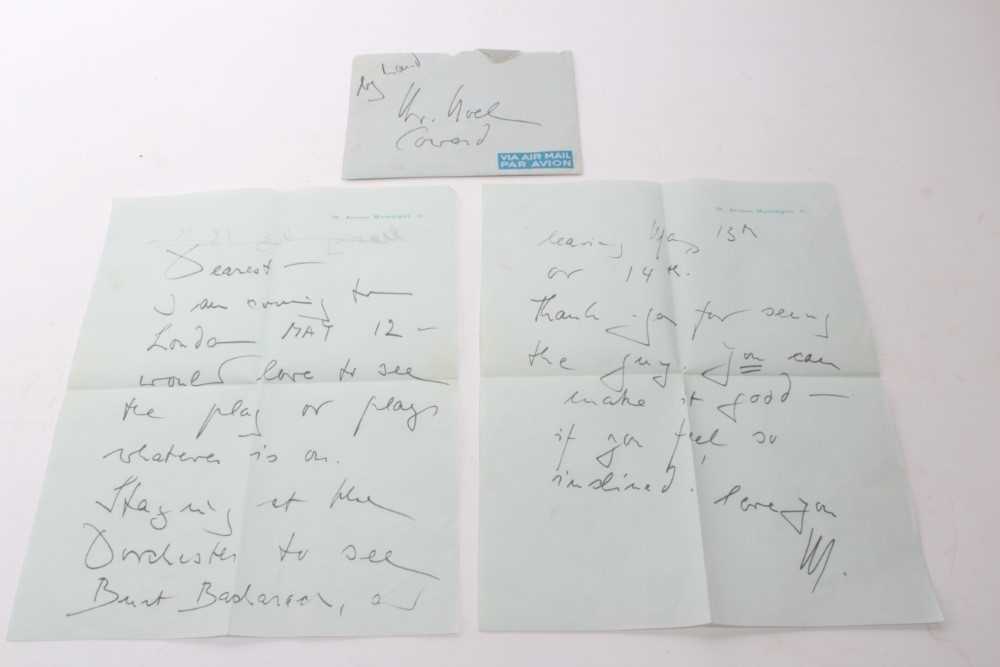 by hand
Mr. Noel
Coward
VIA AIR MAIL
PAR AVION
Dearest —
I am coming to
London MAY 12 —
would love to see
the play or plays
whatever is on.
Staying at the
Dorchester to see
Burt Bacharach, and
leaving May 13th
or 14th.
Thank you for seeing
the guy. You can
make it good —
if you feel so
inclined!
love you
M.